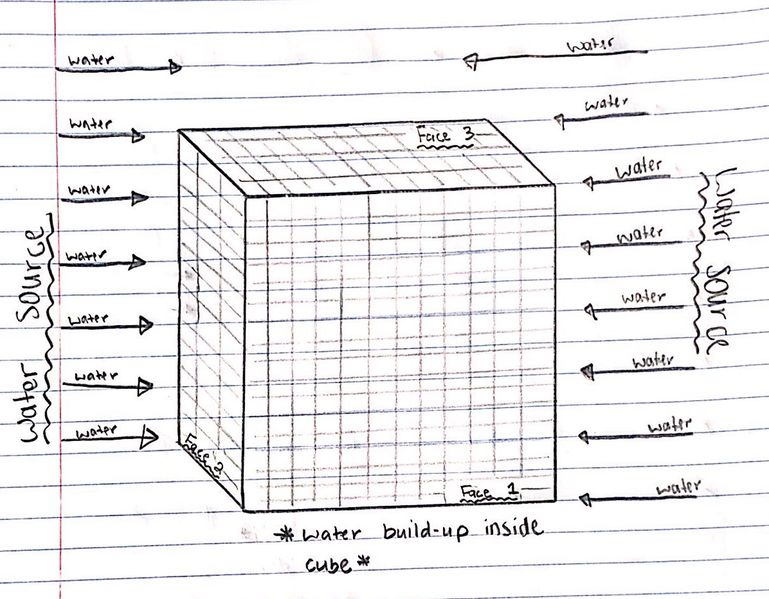 water
water
water
water
Face 3
water
water
water
water
water
water
water
water
water
water
water
water
water
Water Source
Water Source
Face 2
Face 1
* water build-up inside
cube *